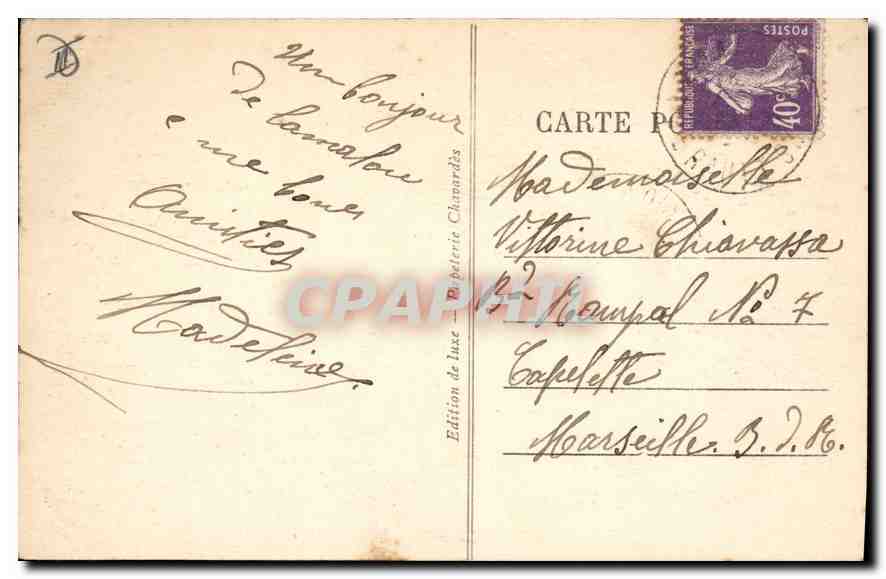 Un bonjour
de Lamalou
e une bones
Amitiés
Madeleine
Edition de luxe — Papeterie Chavardès
CARTE PO
REPUBLIQUE FRANÇAISE
POSTES
40c
Mademoiselle
Vittorine Chiavassa
Bd Rampal No 7
Capelette
Marseille. B. d. R.
CPAPHIL